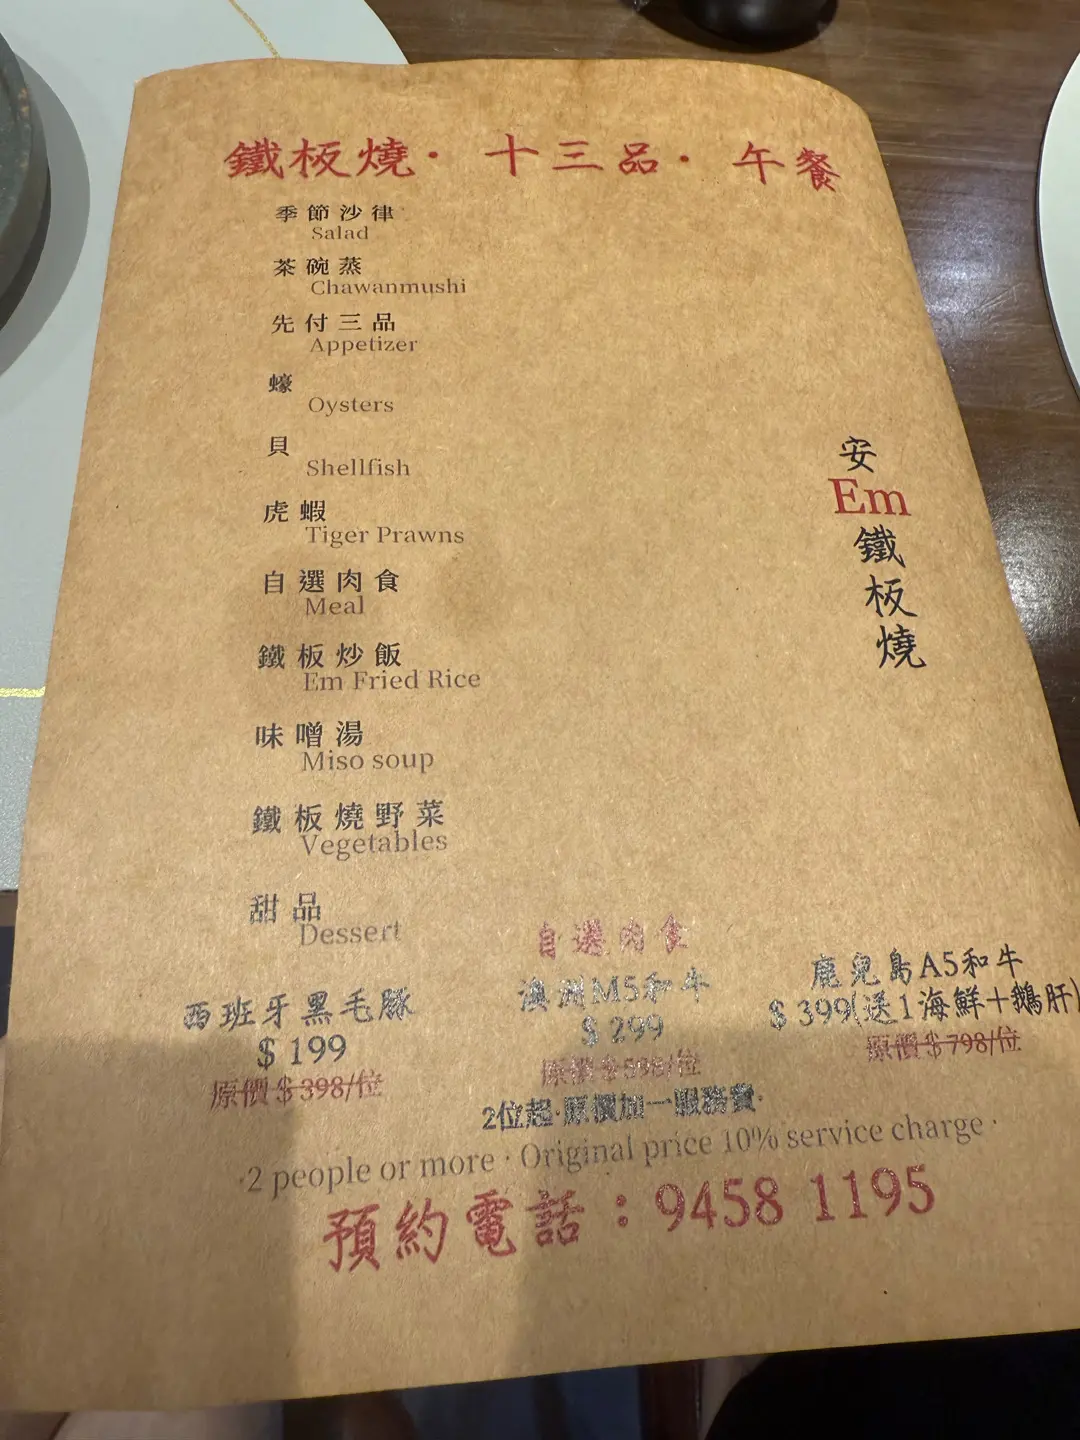 鐵板燒・十三品・午餐
季節沙律
Salad
茶碗蒸
Chawanmushi
先付三品
Appetizer
蠔
Oysters
貝
Shellfish
虎蝦
Tiger Prawns
自選肉食
Meal
鐵板炒飯
Em Fried Rice
味噌湯
Miso soup
鐵板燒野菜
Vegetables
甜品
Dessert
安
Em
鐵
板
燒
自選肉食
西班牙黑毛豚
$199
原價$398/位
澳洲M5和牛
$299
原價$598/位
鹿兒島A5和牛
$399(送1海鮮+鵝肝)
原價$798/位
2位起·原價加一服務費·
·2 people or more · Original price 10% service charge ·
預約電話：9458 1195